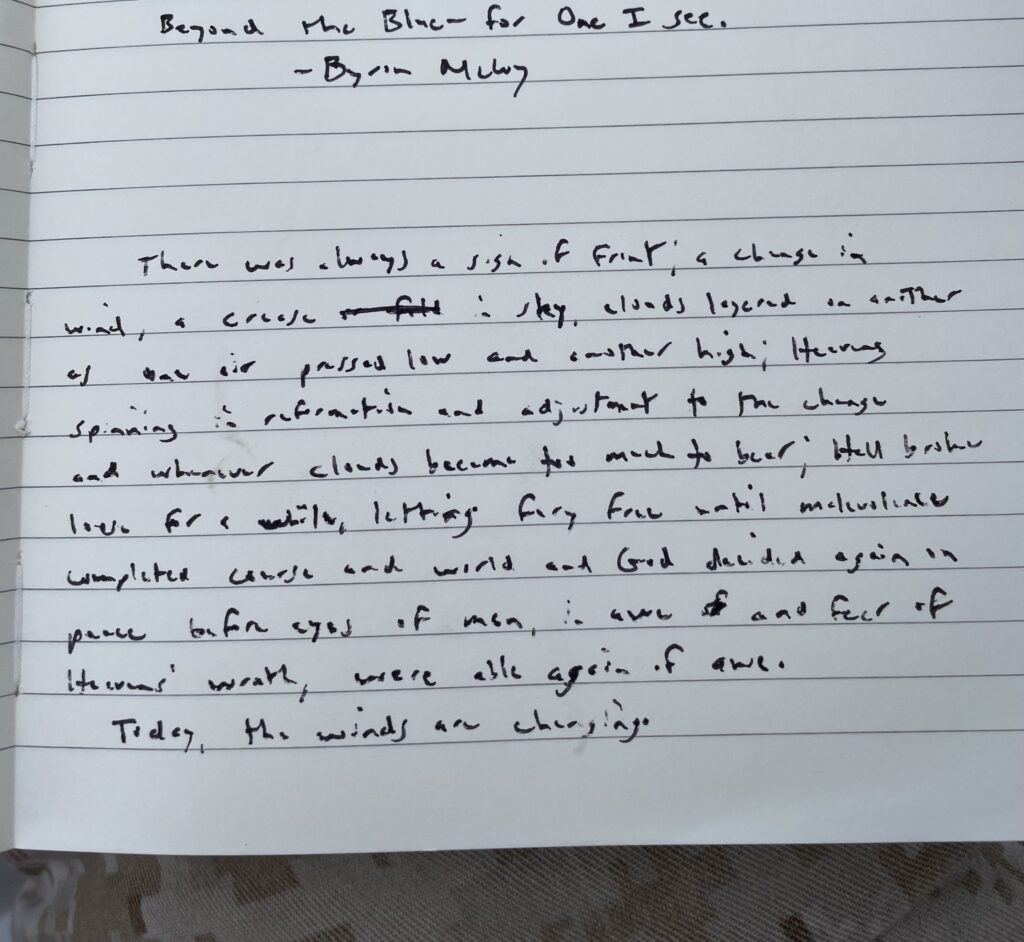 Beyond the Blue – for One I see.
- Byron
There was always a sign of Front; a change in
wind, a crease in sky, clouds layered on another
as one air pressed low and another high; Heavens
spinning in reformation and adjustment to the change
and whenever clouds became too much to bear; Hell broke
loose for a while, letting fury free until malevolence
completed course and world and God decided again on
peace before eyes of men, in awe and fear of
Heavens' wrath, were able again of awe.
Today, the winds are changing.